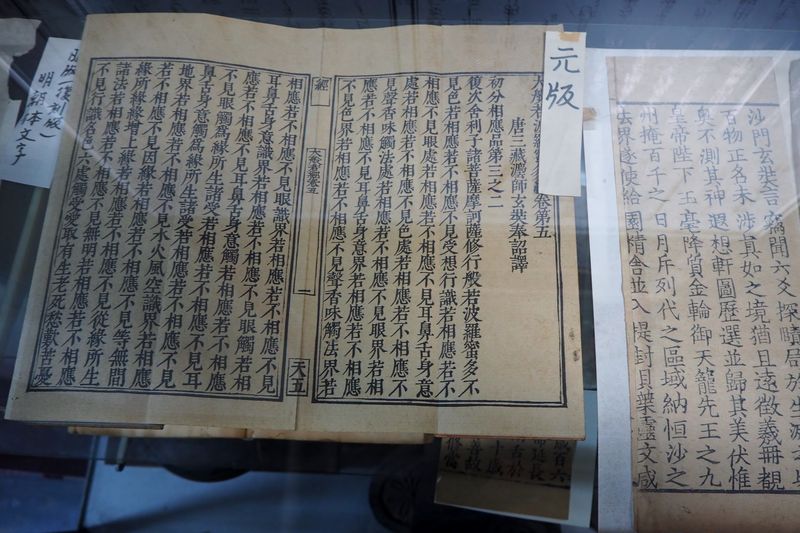 元版
大般若波羅蜜多卷第五
唐三藏灋師玄奘奉詔譯
初分相應品第三之二
復次舍利子諸菩薩摩訶薩修行般若波羅蜜多不
見色若相應若不相應不見受想行識若相應若不
相應不見眼處若相應若不相應不見耳鼻舌身意
處若相應若不相應不見色處若相應若不相應不
見聲香味觸法處若相應若不相應不見眼界若相
應若不相應不見耳鼻舌身意界若相應若不相應
不見色界若相應若不相應不見聲香味觸法界若
經
大般若經卷五
一
天五
相應若不相應不見眼識界若相應若不相應不見
耳鼻舌身意識界若相應若不相應不見眼觸若相
應若不相應不見耳鼻舌身意觸若相應若不相應
不見眼觸為緣所生諸受若相應若不相應不見耳
鼻舌身意觸為緣所生諸受若相應若不相應不見
地界若相應若不相應不見水火風空識界若相應
若不相應不見因緣若相應若不相應不見等無間
緣所緣緣增上緣若相應若不相應不見從緣所生
諸法若相應若不相應不見無明若相應若不相應
不見行識名色六處觸受愛取有生老死愁歎苦憂
版(復刻版)
明朝体文字
沙門玄奘言竊聞六爻探賾局於生滅之
古物正名未涉真如之境猶且遠徵羲冊覩
奧不測其神遐想軒圖歷選並歸其美伏惟
皇帝陛下玉毫降質金輪御天籠先王之九
州掩百千之日月斥列代之區域納恒沙之
法界遂使給園精舍並入提封貝葉靈文咸